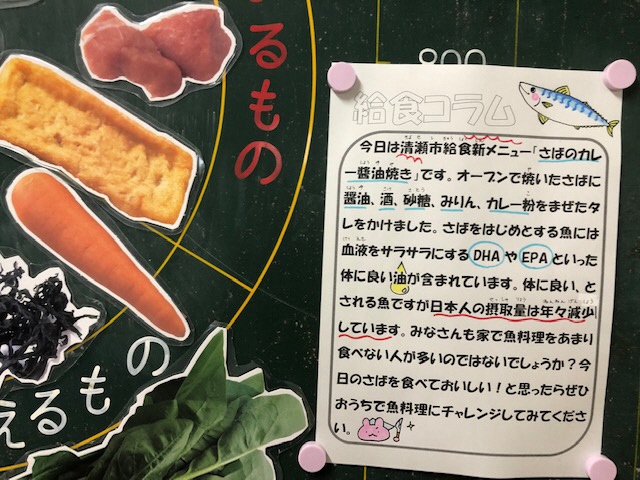 るもの
えるもの
給食コラム
今日は清瀬市給食新メニュー「さばのカレ
ー醬油焼き」です。オーブンで焼いたさばに
醬油、酒、砂糖、みりん、カレー粉をまぜたタ
レをかけました。さばをはじめとする魚には
血液をサラサラにするDHAやEPAといった
体に良い油が含まれています。体に良い、と
される魚ですが日本人の摂取量は年々減少
しています。みなさんも家で魚料理をあまり
食べない人が多いのではないでしょうか？今
日のさばを食べておいしい！と思ったらぜひ
おうちで魚料理にチャレンジしてみてくださ
い。